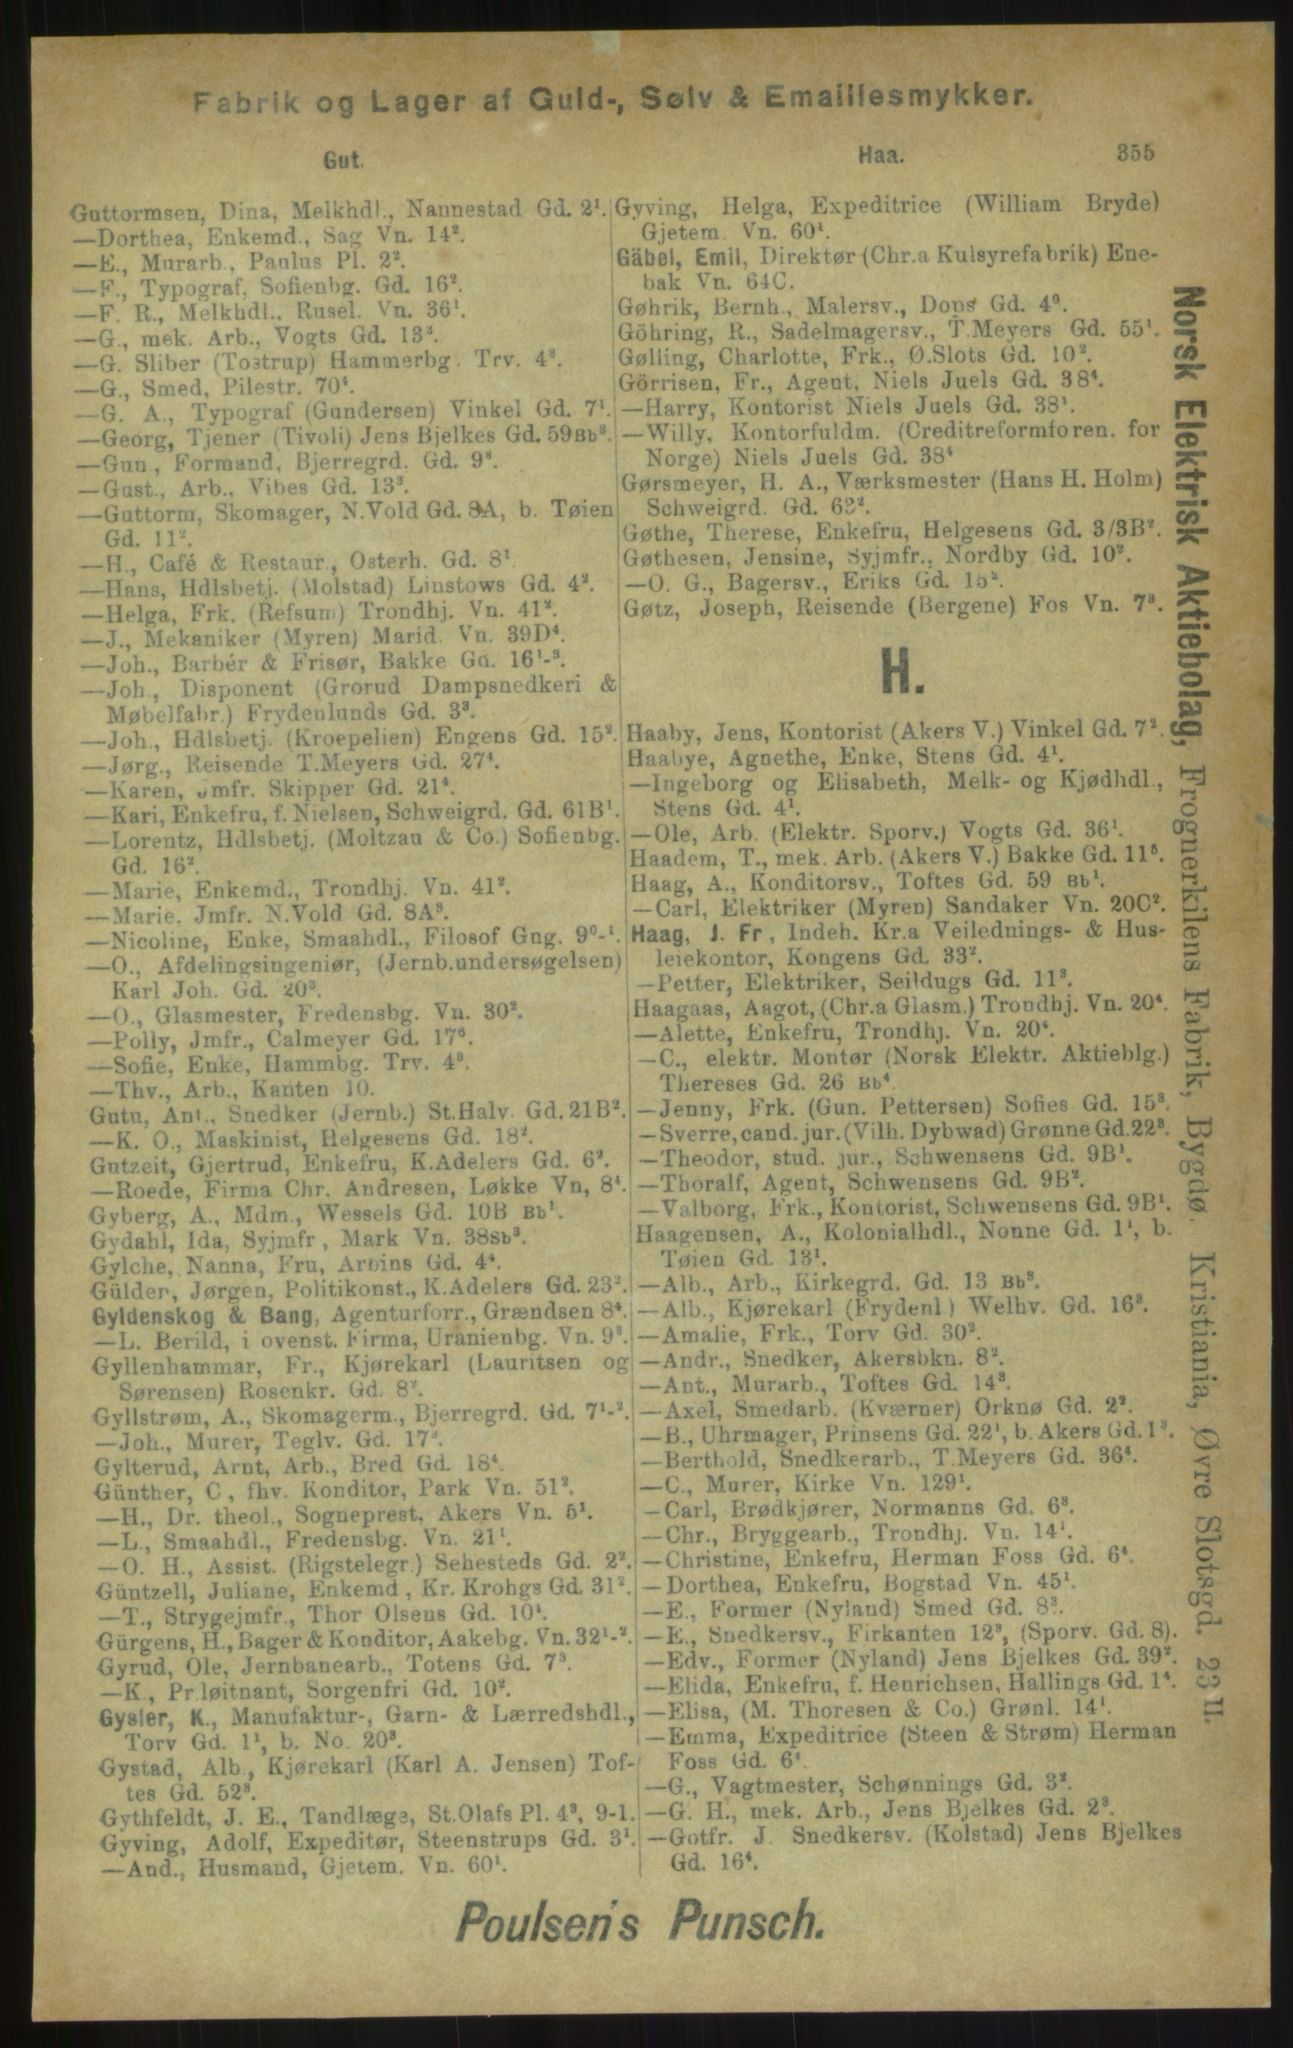 Fabrik og Lager af Guld-, Sølv & Emaillesmykker.
Gut.
Haa. 355
Guttormsen, Dina, Melkhdl., Nannestad Gd. 2¹.
—Dorthea, Enkemd., Sag Vn. 14².
—E., Murarb., Paulus Pl. 2².
—F., Typograf, Sofienbg. Gd. 16².
—F. R., Melkhdl., Rusel. Vn. 36¹.
—G., mek. Arb., Vogts Gd. 13³.
—G. Sliber (Tostrup) Hammerbg. Trv. 4³.
—G., Smed, Pilestr. 70⁴.
—G. A., Typograf (Gundersen) Vinkel Gd. 7¹.
—Georg, Tjener (Tivoli) Jens Bjelkes Gd. 59Bb³.
—Gun., Formand, Bjerregrd. Gd. 9³.
—Gust., Arb., Vibes Gd. 13³.
—Guttorm, Skomager, N.Vold Gd. 8A, b. Tøien
Gd. 11².
—H., Café & Restaur., Osterh. Gd. 8¹
—Hans, Hdlsbetj. (Molstad) Linstows Gd. 4².
—Helga, Frk. (Refsum) Trondhj. Vn. 41².
—J., Mekaniker (Myren) Marid. Vn. 39D⁴.
—Joh., Barbér & Frisør, Bakke Gd. 16¹-³.
—Joh., Disponent (Grorud Dampsnedkeri &
Møbelfabr.) Frydenlunds Gd. 3³.
—Joh., Hdlsbetj. (Kroepelien) Engens Gd. 15².
—Jørg., Reisende T.Meyers Gd. 27⁴.
—Karen, Jmfr. Skipper Gd. 21⁴.
—Kari, Enkefru, f. Nielsen, Schweigrd. Gd. 61B¹.
—Lorentz, Hdlsbetj. (Moltzau & Co.) Sofienbg.
Gd. 16².
—Marie, Enkemd., Trondhj. Vn. 41².
—Marie, Jmfr. N.Vold Gd. 8A³.
—Nicoline, Enke, Smaahdl., Filosof Gng. 9⁰-¹.
—O., Afdelingsingeniør, (Jernb.undersøgelsen)
Karl Joh. Gd. 20³.
—O., Glasmester, Fredensbg. Vn. 30².
—Polly, Jmfr., Calmeyer Gd. 17⁶.
—Sofie, Enke, Hammbg. Trv. 4³.
—Thv., Arb., Kanten 10.
Gutu, Ant., Snedker (Jernb.) St.Halv. Gd. 21B².
—K. O., Maskinist, Helgesens Gd. 18².
Gutzeit, Gjertrud, Enkefru, K.Adelers Gd. 6².
—Roede, Firma Chr. Andresen, Løkke Vn, 8⁴.
Gyberg, A., Mdm., Wessels Gd. 10B Bb¹.
Gydahl, Ida, Syjmfr, Mark Vn. 38Sb³.
Gylche, Nanna, Fru, Arbins Gd. 4⁴.
Gülder, Jørgen, Politikonst., K.Adelers Gd. 23².
Gyldenskog & Bang, Agenturforr., Grændsen 8⁴.
—L. Berild, i ovenst. Firma, Uranienbg. Vn. 9³.
Gyllenhammar, Fr., Kjørekarl (Lauritsen og
Sørensen) Rosenkr. Gd. 8².
Gyllstrøm, A., Skomagerm., Bjerregrd. Gd. 7¹-².
—Joh., Murer, Teglv. Gd. 17³.
Gylterud, Arnt, Arb., Bred Gd. 18⁴.
Günther, C., fhv. Konditor, Park Vn. 51².
—H., Dr. theol., Sogneprest, Akers Vn. 5¹.
—L., Smaahdl., Fredensbg. Vn. 21¹.
—O. H., Assist. (Rigstelegr.) Sehesteds Gd. 2².
Güntzell, Juliane, Enkemd, Kr. Krohgs Gd. 31².
—T., Strygejmfr., Thor Olsens Gd. 10⁴.
Gürgens, H., Bager & Konditor, Aakebg. Vn. 32¹-².
Gyrud, Ole, Jernbanearb., Totens Gd. 7³.
—K., Pr.løitnant, Sorgenfri Gd. 10².
Gysler, K., Manufaktur-, Garn- & Lærredshdl.,
Torv Gd. 1¹, b. No. 20³.
Gystad, Alb., Kjørekarl (Karl A. Jensen) Tof-
tes Gd. 52³.
Gythfeldt, J. E., Tandlæge, St.Olafs Pl. 4³, 9-1.
Gyving, Adolf, Expeditør, Steenstrups Gd. 3¹.
—And., Husmand, Gjetem. Vn. 60¹.
Gyving, Helga, Expeditrice (William Bryde)
Gjetem. Vn. 60¹.
Gäbel, Emil, Direktør (Chr.a Kulsyrefabrik) Ene-
bak Vn. 64C.
Gøhrik, Bernh., Malersv., Dons Gd. 4⁰.
Göhring, R., Sadelmagersv., T.Meyers Gd. 55¹.
Gølling, Charlotte, Frk., Ø.Slots Gd. 10².
Görrisen, Fr., Agent, Niels Juels Gd. 38⁴.
—Harry, Kontorist Niels Juels Gd. 38¹.
—Willy, Kontorfuldm. (Creditreformforen. for
Norge) Niels Juels Gd. 38⁴
Gørsmeyer, H. A., Værksmester (Hans H. Holm)
Schweigrd. Gd. 63².
Gøthe, Therese, Enkefru, Helgesens Gd. 3/3B².
Gøthesen, Jensine, Syjmfr., Nordby Gd. 10².
—O. G., Bagersv., Eriks Gd. 15².
Gøtz, Joseph, Reisende (Bergene) Fos Vn. 7³.
H.
Haaby, Jens, Kontorist (Akers V.) Vinkel Gd. 7².
Haabye, Agnethe, Enke, Stens Gd. 4¹.
—Ingeborg og Elisabeth, Melk- og Kjødhdl.,
Stens Gd. 4¹.
—Ole, Arb. (Elektr. Sporv.) Vogts Gd. 36¹.
Haadem, T., mek. Arb. (Akers V.) Bakke Gd. 11⁵.
Haag, A., Konditorsv., Toftes Gd. 59 Bb¹.
—Carl, Elektriker (Myren) Sandaker Vn. 20C².
Haag, J. Fr., Indeh. Kr.a Veilednings- & Hus-
leiekontor, Kongens Gd. 33².
—Petter, Elektriker, Seildugs Gd. 11³.
Haagaas, Aagot, (Chr.a Glasm.) Trondhj. Vn. 20⁴.
—Alette, Enkefru, Trondhj. Vn. 20⁴.
—C., elektr. Montør (Norsk Elektr. Aktieblg.)
Thereses Gd. 26 Bb⁴.
—Jenny, Frk. (Gun. Pettersen) Sofies Gd. 15³.
—Sverre, cand. jur. (Vilh. Dybwad) Grønne Gd. 22³.
—Theodor, stud. jur., Schwensens Gd. 9B¹.
—Thoralf, Agent, Schwensens Gd. 9B².
—Valborg, Frk., Kontorist, Schwensens Gd. 9B¹.
Haagensen, A., Kolonialhdl., Nonne Gd. 1¹, b.
Tøien Gd. 13¹.
—Alb., Arb., Kirkegrd. Gd. 13 Bb³.
—Alb., Kjørekarl (Frydenl.) Welhv. Gd. 16³.
—Amalie, Frk., Torv Gd. 30².
—Andr., Snedker, Akersbkn. 8².
—Ant., Murarb., Toftes Gd. 14³.
—Axel, Smedarb. (Kværner) Orknø Gd. 2².
—B., Uhrmager, Prinsens Gd. 22¹, b. Akers Gd. 1³.
—Berthold, Snedkerarb., T.Meyers Gd. 36⁴.
—C., Murer, Kirke Vn. 129¹.
—Carl, Brødkjører, Normanns Gd. 6³.
—Chr., Bryggearb., Trondhj. Vn. 14¹.
—Christine, Enkefru, Herman Foss Gd. 6⁴.
—Dorthea, Enkefru, Bogstad Vn. 45¹.
—E., Former (Nyland) Smed Gd. 8³.
—E., Snedkersv., Firkanten 12³, (Sporv. Gd. 8).
—Edv., Former (Nyland) Jens Bjelkes Gd. 39².
—Elida, Enkefru, f. Henrichsen, Hallings Gd. 1⁴.
—Elisa, (M. Thoresen & Co.) Grønl. 14¹.
—Emma, Expeditrice (Steen & Strøm) Herman
Foss Gd. 6⁴.
—G., Vagtmester, Schønnings Gd. 3².
—G. H., mek. Arb., Jens Bjelkes Gd. 2³.
—Gotfr. J. Snedkersv. (Kolstad) Jens Bjelkes
Gd. 16⁴.
Norsk Elektrisk Aktiebolag, Frognerkilens Fabrik, Bygdø. Kristiania, Øvre Slotsgd. 23 II.
Poulsen's Punsch.